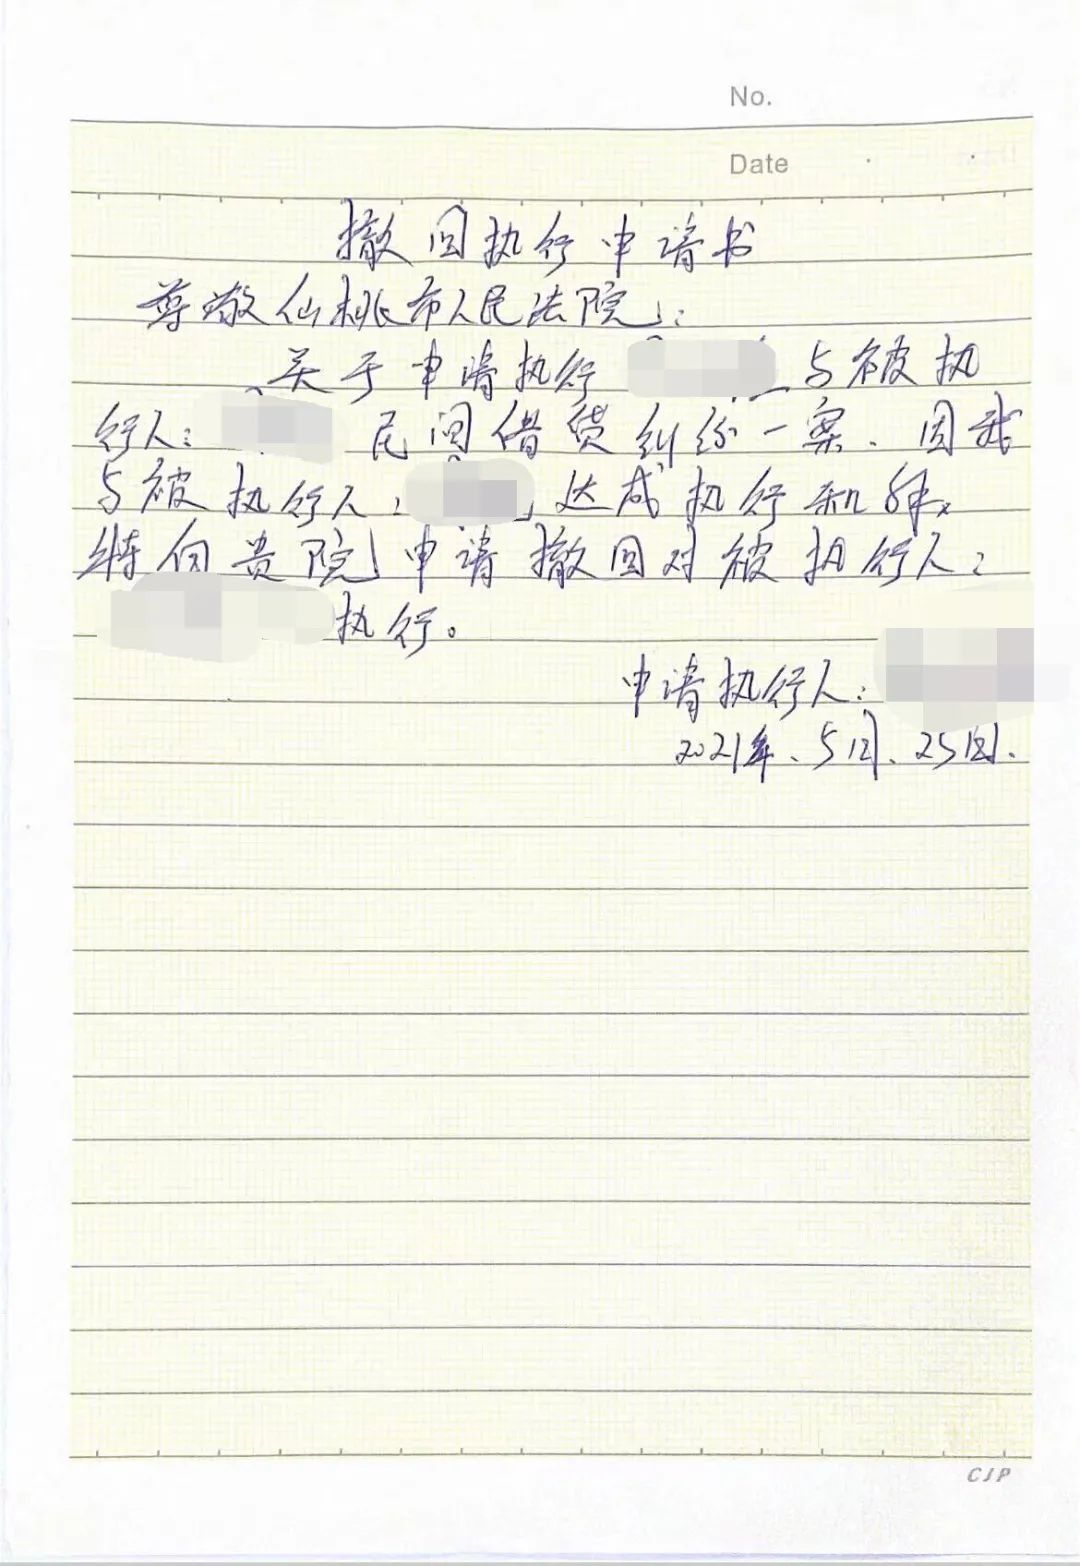 No.
Date
撤回执行申请书
尊敬仙桃市人民法院:
关于申请执行 与被执
行人: 民间借贷纠纷一案、因我
与被执行人: 达成执行和解,
特向贵院申请撤回对被执行人:
执行。
申请执行人:
2021年、5月、25日.
CJP